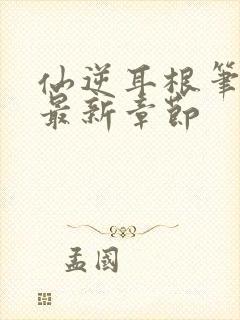 仙逆耳根筆
最新章節
孟國